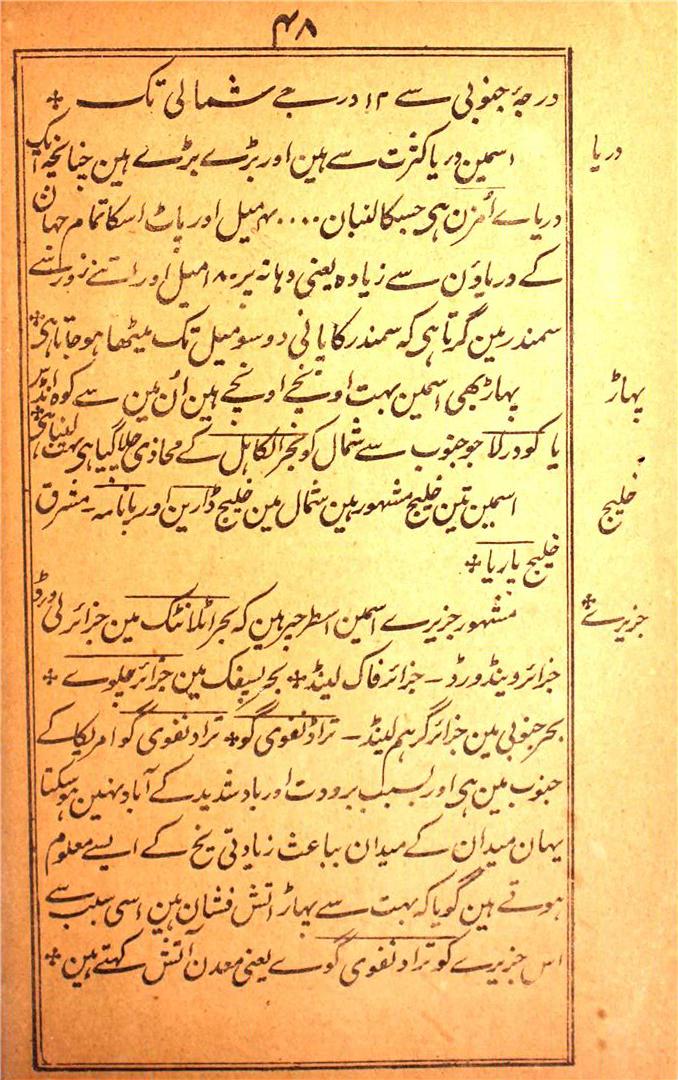 ۴۸
درجۂ جنوبی سے ۱۲ درجے شمالی تک ❖
دریا
اسمین دریا کثرت سے ہین اور بڑے بڑے ہین چنانچہ ایک
دریاے اُمزن ہی جسکا لنبان ۴۰۰۰ میل اور پاٹ اسکا تمام جہان
کے دریاؤن سے زیادہ یعنی دہانہ پر ۱۸۰ میل اور اتنے زور سے
سمندر مین گرتا ہی کہ سمندر کا پانی دو سو میل تک میٹھا ہو جاتا ہی ❖
پہاڑ
پہاڑ بھی اسمین بہت اونچے اونچے ہین اُن مین سے کوہ انڈیس
یا کودرلا جو جنوب سے شمال کو بحر الکاہل کے محاذی چلا گیا ہی بہت لنبا ہی ❖
خلیج
اسمین تین خلیج مشہور ہین شمال مین خلیج ڈارین اور پانامہ ۔ مشرق
خلیج پاریا ❖
جزیرے ❖
مشہور جزیرے اسمین اسطرح پر ہین کہ بحر اٹلانٹک مین جزائر لی ورڈ
جزائر ونڈورڈ ۔ جزائر فاک لینڈ ❖ بحر پسیفک مین جزائر چلوے ❖
بحر جنوبی مین جزائر گرہم لینڈ ۔ ترادلفوی گو ❖ ترادلفوی گو امریکا کے
جنوب مین ہی اور بسبب برودت اور باد شدید کے آباد نہین ہو سکتا
یہان میدان کے میدان بباعث زیادتی یخ کے ایسے معلوم
ہوتے ہین گویا کہ بہت سے پہاڑ آتش فشان ہین اسی سبب سے
اس جزیرے کو ترادلفوی گوے یعنی معدن آتش کہتے ہین ❖